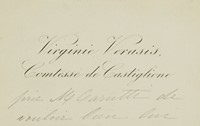 Virginie Verasis,
Comtesse de Castiglione
prie M de
vouloir bien lui